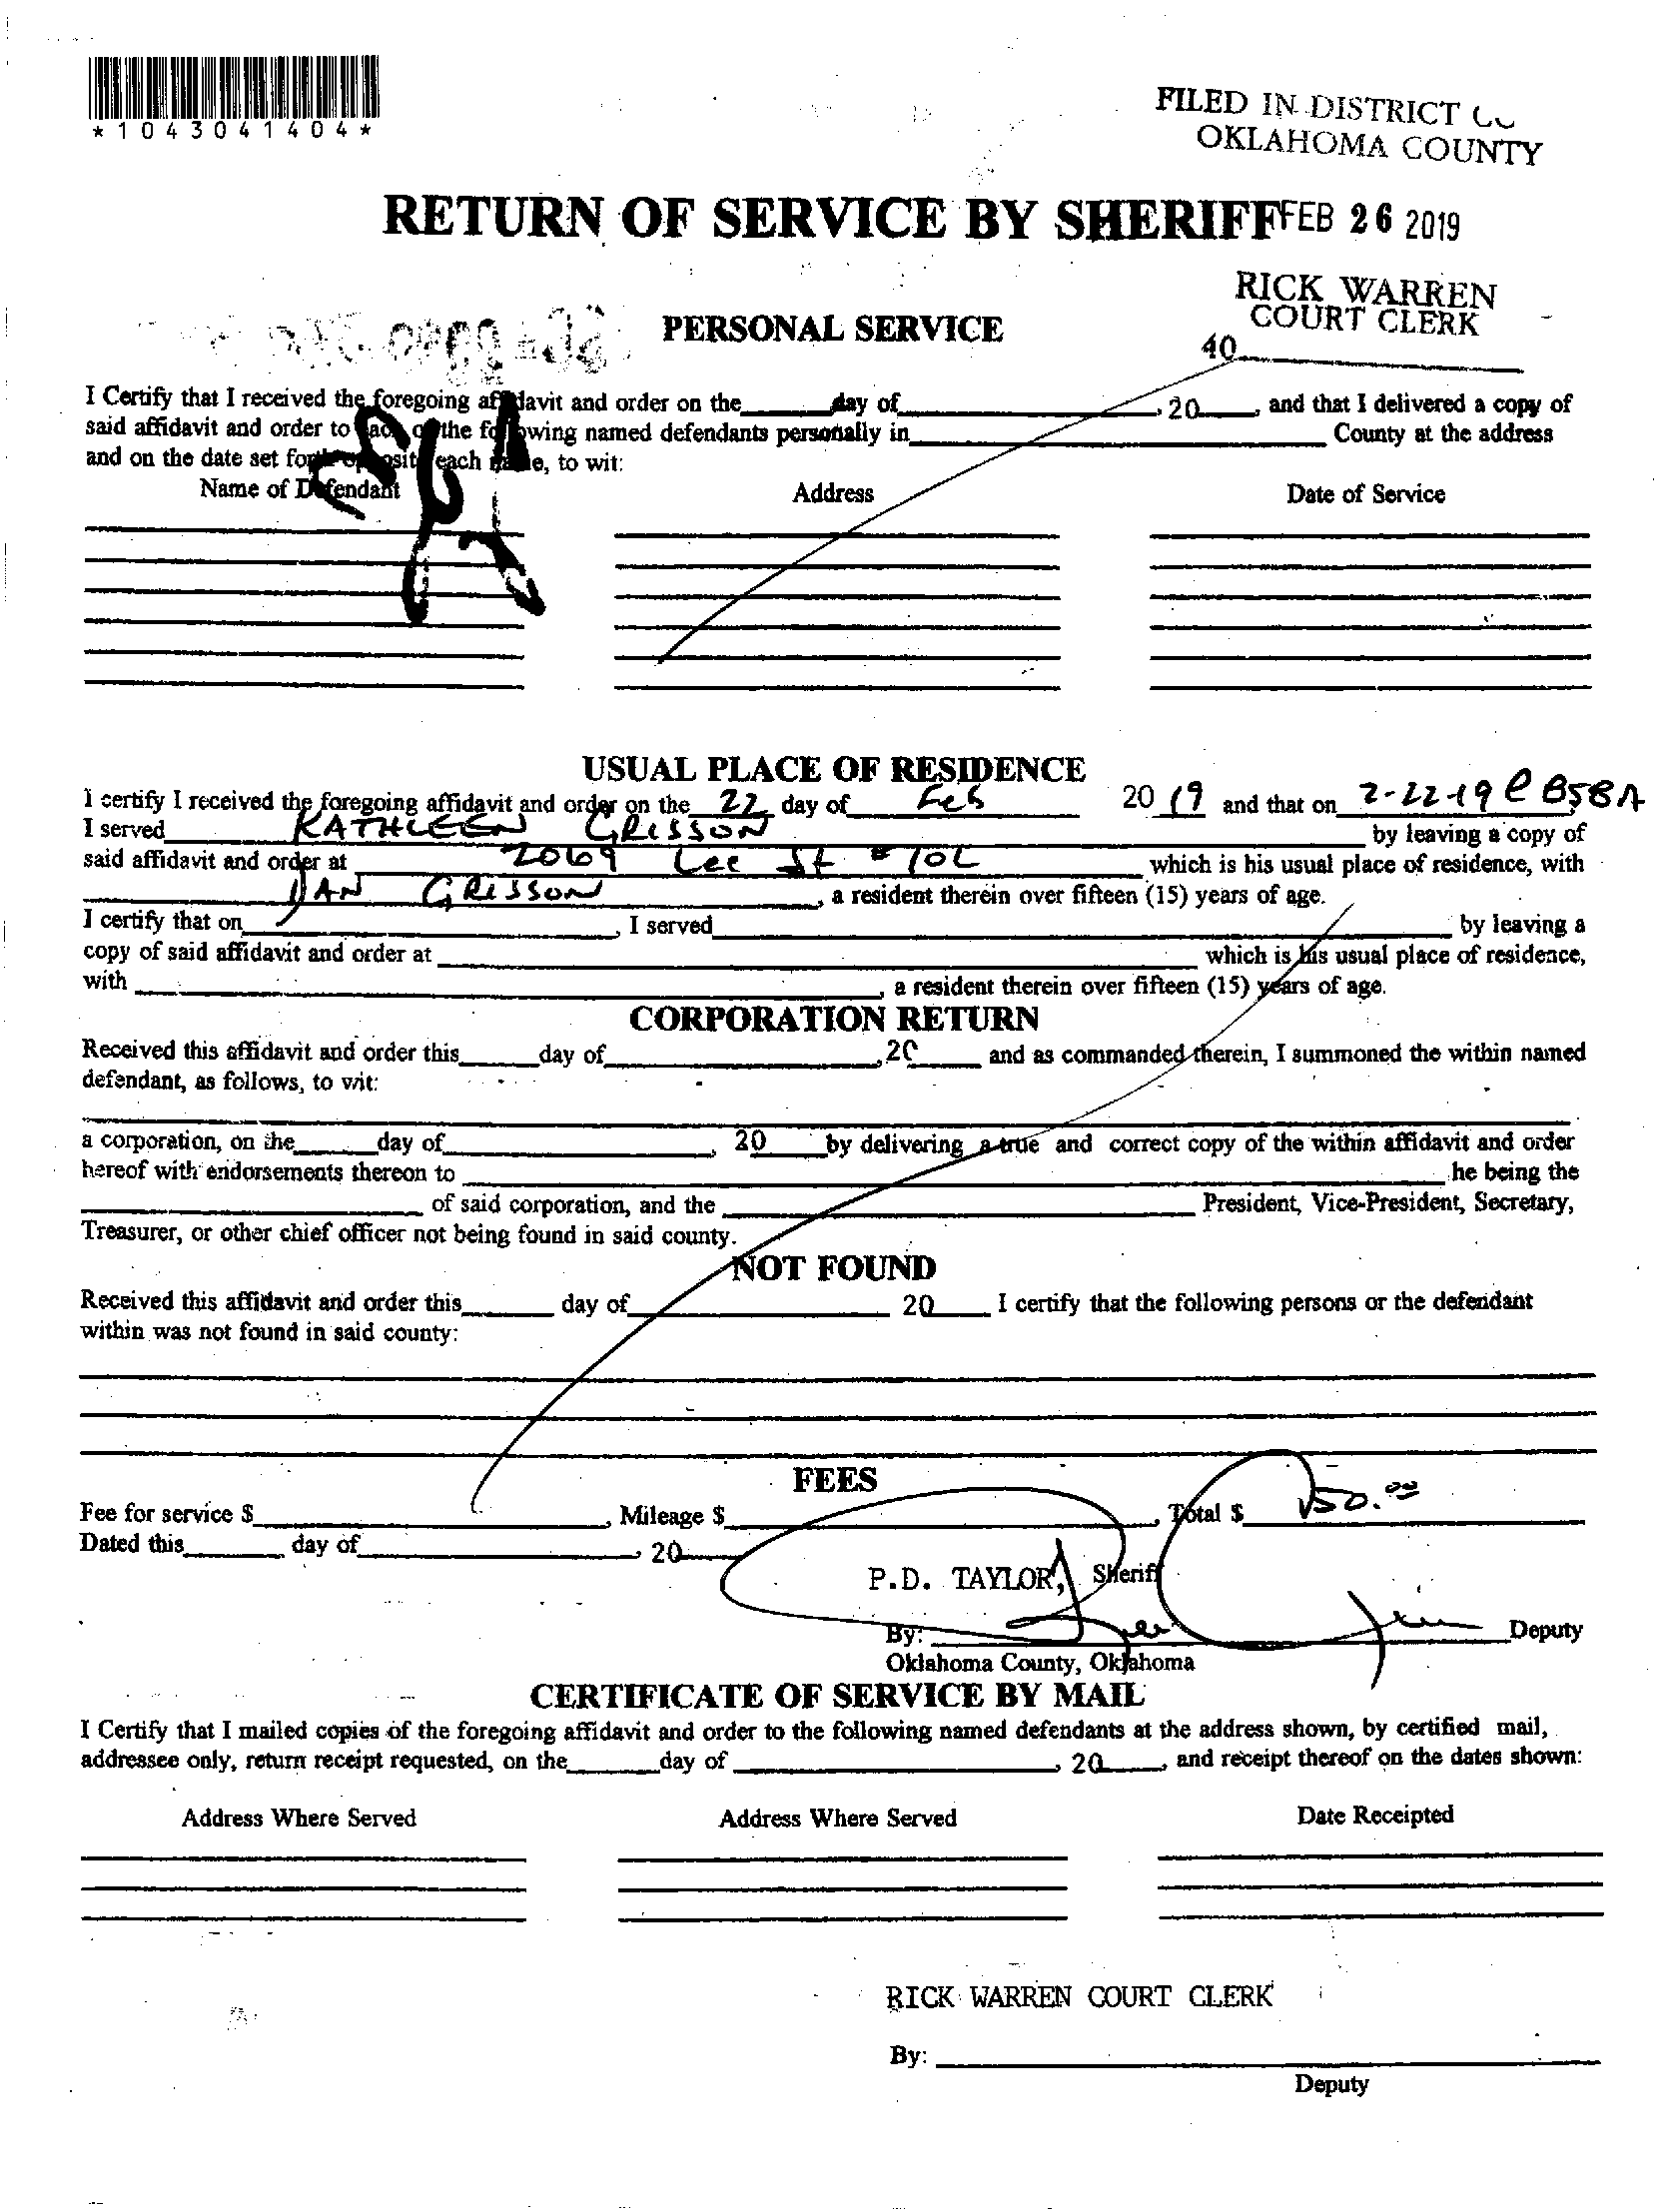 *1043041404*
FILED IN DISTRICT
OKLAHOMA COUNTY
RETURN OF SERVICE BY SHERIFF
FEB 26 2019
RICK WARREN
COURT CLERK
40
PERSONAL SERVICE
I Certify that I received the foregoing affidavit and order on the day of , 20 , and that I delivered a copy of
said affidavit and order to each of the following named defendants personally in County at the address
and on the date set forth opposite each name, to wit:
Name of Defendant Address Date of Service
USUAL PLACE OF RESIDENCE
I certify I received the foregoing affidavit and order on the 22 day of Feb 20 19 and that on 2-22-19 @ 858A
I served KATHLEEN GRISSON by leaving a copy of
said affidavit and order at 2069 Lee St # 102 which is his usual place of residence, with
DAN GRISSON , a resident therein over fifteen (15) years of age.
I certify that on , I served by leaving a
copy of said affidavit and order at which is his usual place of residence,
with , a resident therein over fifteen (15) years of age.
CORPORATION RETURN
Received this affidavit and order this day of , 20 and as commanded therein, I summoned the within named
defendant, as follows, to wit:
a corporation, on the day of , 20 by delivering a true and correct copy of the within affidavit and order
hereof with endorsements thereon to he being the
of said corporation, and the President, Vice-President, Secretary,
Treasurer, or other chief officer not being found in said county.
NOT FOUND
Received this affidavit and order this day of 20 I certify that the following persons or the defendant
within was not found in said county:
FEES
Fee for service $ , Mileage $ , Total $ 50.00
Dated this day of , 20
P.D. TAYLOR, Sheriff
By: Deputy
Oklahoma County, Oklahoma
CERTIFICATE OF SERVICE BY MAIL
I Certify that I mailed copies of the foregoing affidavit and order to the following named defendants at the address shown, by certified mail,
addressee only, return receipt requested, on the day of , 20 , and receipt thereof on the dates shown:
Address Where Served Address Where Served Date Receipted
RICK WARREN COURT CLERK
By:
Deputy